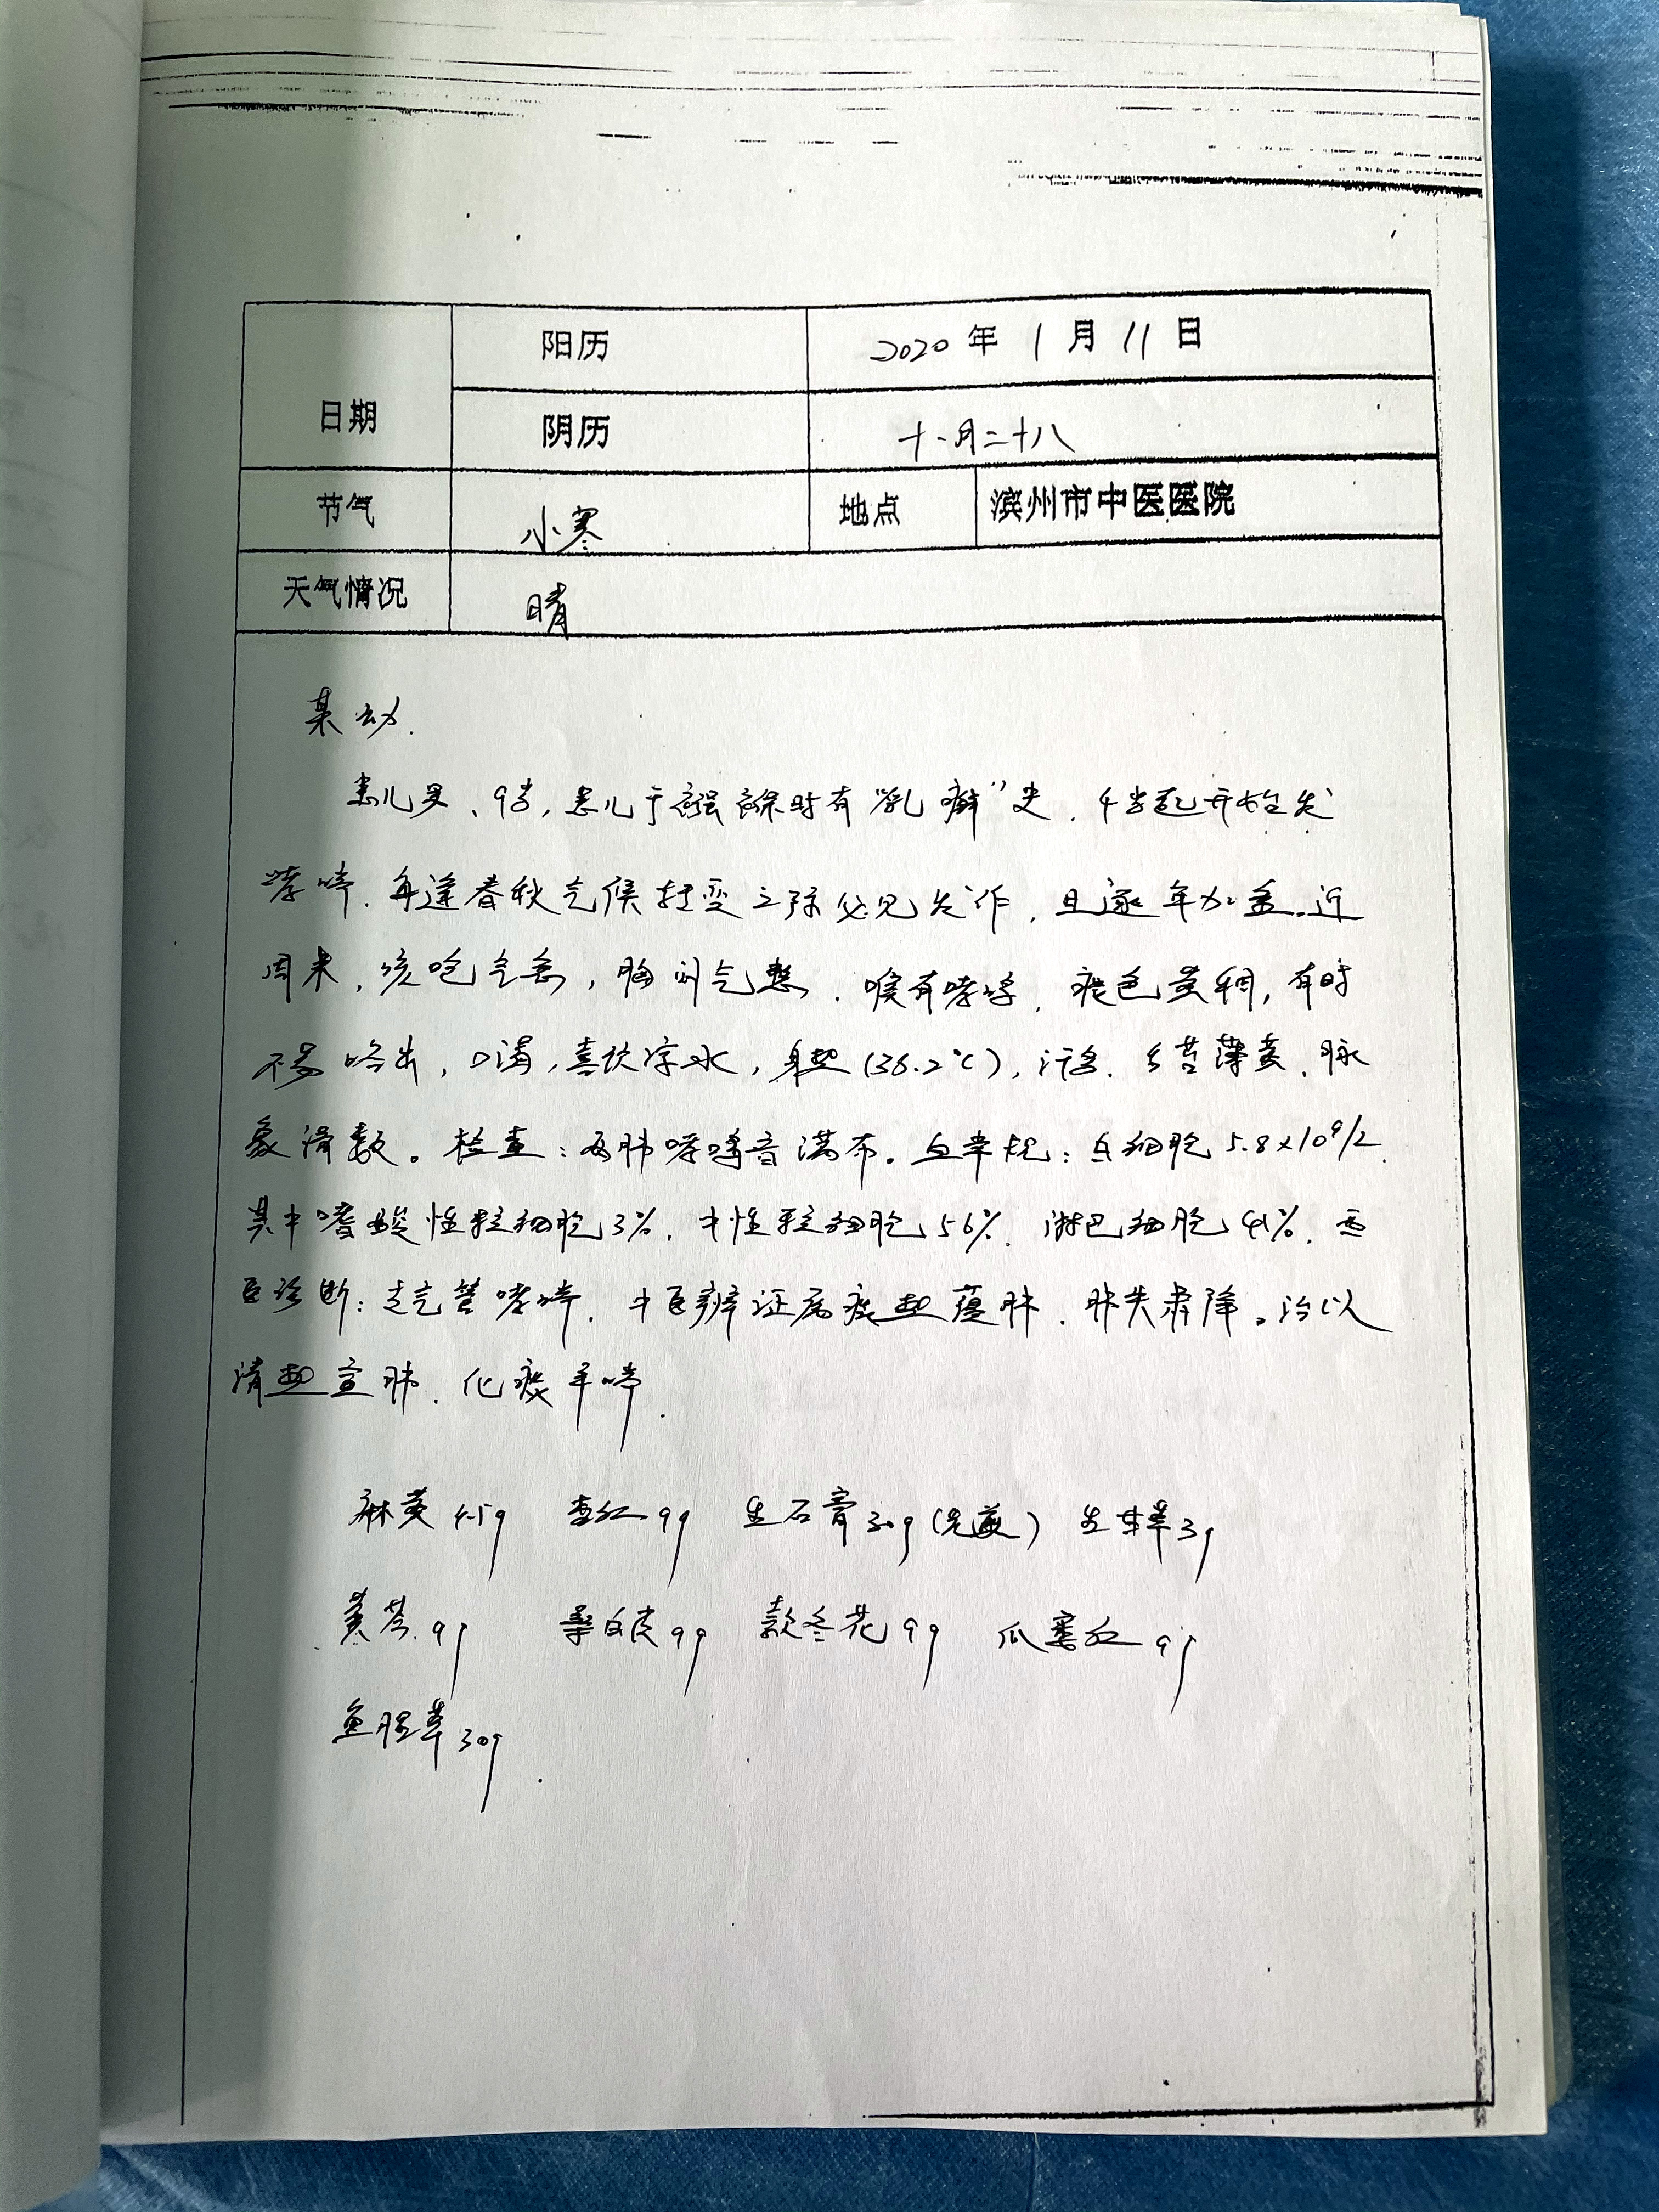 阳历 2020年 1月 11日
日期
阴历 十一月二十八
节气 小寒 地点 滨州市中医医院
天气情况 晴
某幼.
患儿男、9岁,患儿于襁褓时有"乳癣"史.4岁起开始发
哮喘.每逢春秋气候转变之际必见发作,且逐年加重.近
周来,咳呛气急,胸闷气憋.喉有哮鸣,痰色黄稠,有时
不易咯出,口渴,喜饮凉水,身热(38.2℃),汗多.舌苔薄黄.脉
象滑数。检查:两肺哮鸣音满布。血常规:白细胞5.8×10⁹/L
其中嗜酸性粒细胞3%.中性粒细胞56%.淋巴细胞41%.西
医诊断:支气管哮喘.中医辨证属痰热蕴肺.肺失肃降。治以
清热宣肺.化痰平喘.
麻黄4.5g 杏仁9g 生石膏30g(先煎) 生甘草3g
黄芩9g 桑白皮9g 款冬花9g 瓜蒌仁9g
鱼腥草30g.